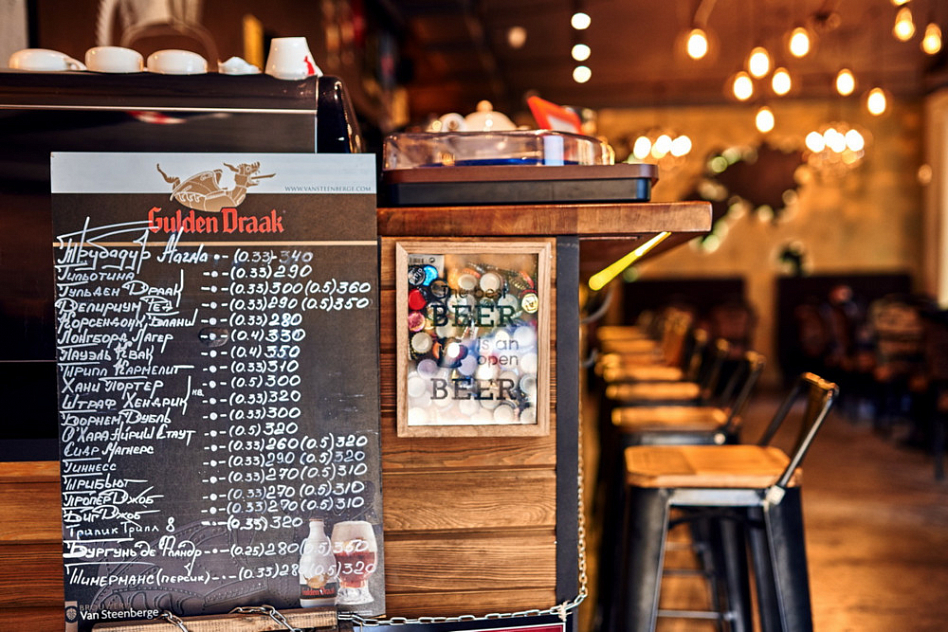 WWW.VANSTEENBERGE.COM
Gulden Draak
Трубадур Магма (0.33) 340
Гильотина (0.33) 290
Гульден Драак (0.33) 300 (0.5) 360
Делириум Тел (0.33) 290 (0.5) 350
Корсендонк Бланш (0.33) 280
Лонгборд Лагер (0.4) 330
Пауэль Квак (0.4) 350
Трипл Кармелит (0.33) 310
Хани Портер (0.5) 300
Штраф Хендрик кв. (0.33) 320
Борнем Дубль (0.33) 300
О'Хара Айриш Стаут (0.5) 320
Сидр Магнерс (0.33) 260 (0.5) 320
Гиннесс (0.33) 290 (0.5) 320
Трибьют (0.33) 270 (0.5) 310
Пропер Джоб (0.33) 270 (0.5) 310
Биг Джоб (0.33) 270 (0.5) 310
Трипик Трипл 8 (0.33) 320
Бургунь де Фландр (0.25) 280 (0.5) 360
Тимерманс (персик) (0.33) 280 (0.5) 320
Gulden Draak
BROUWERIJ
Van Steenberge
BEER
is an
open
BEER